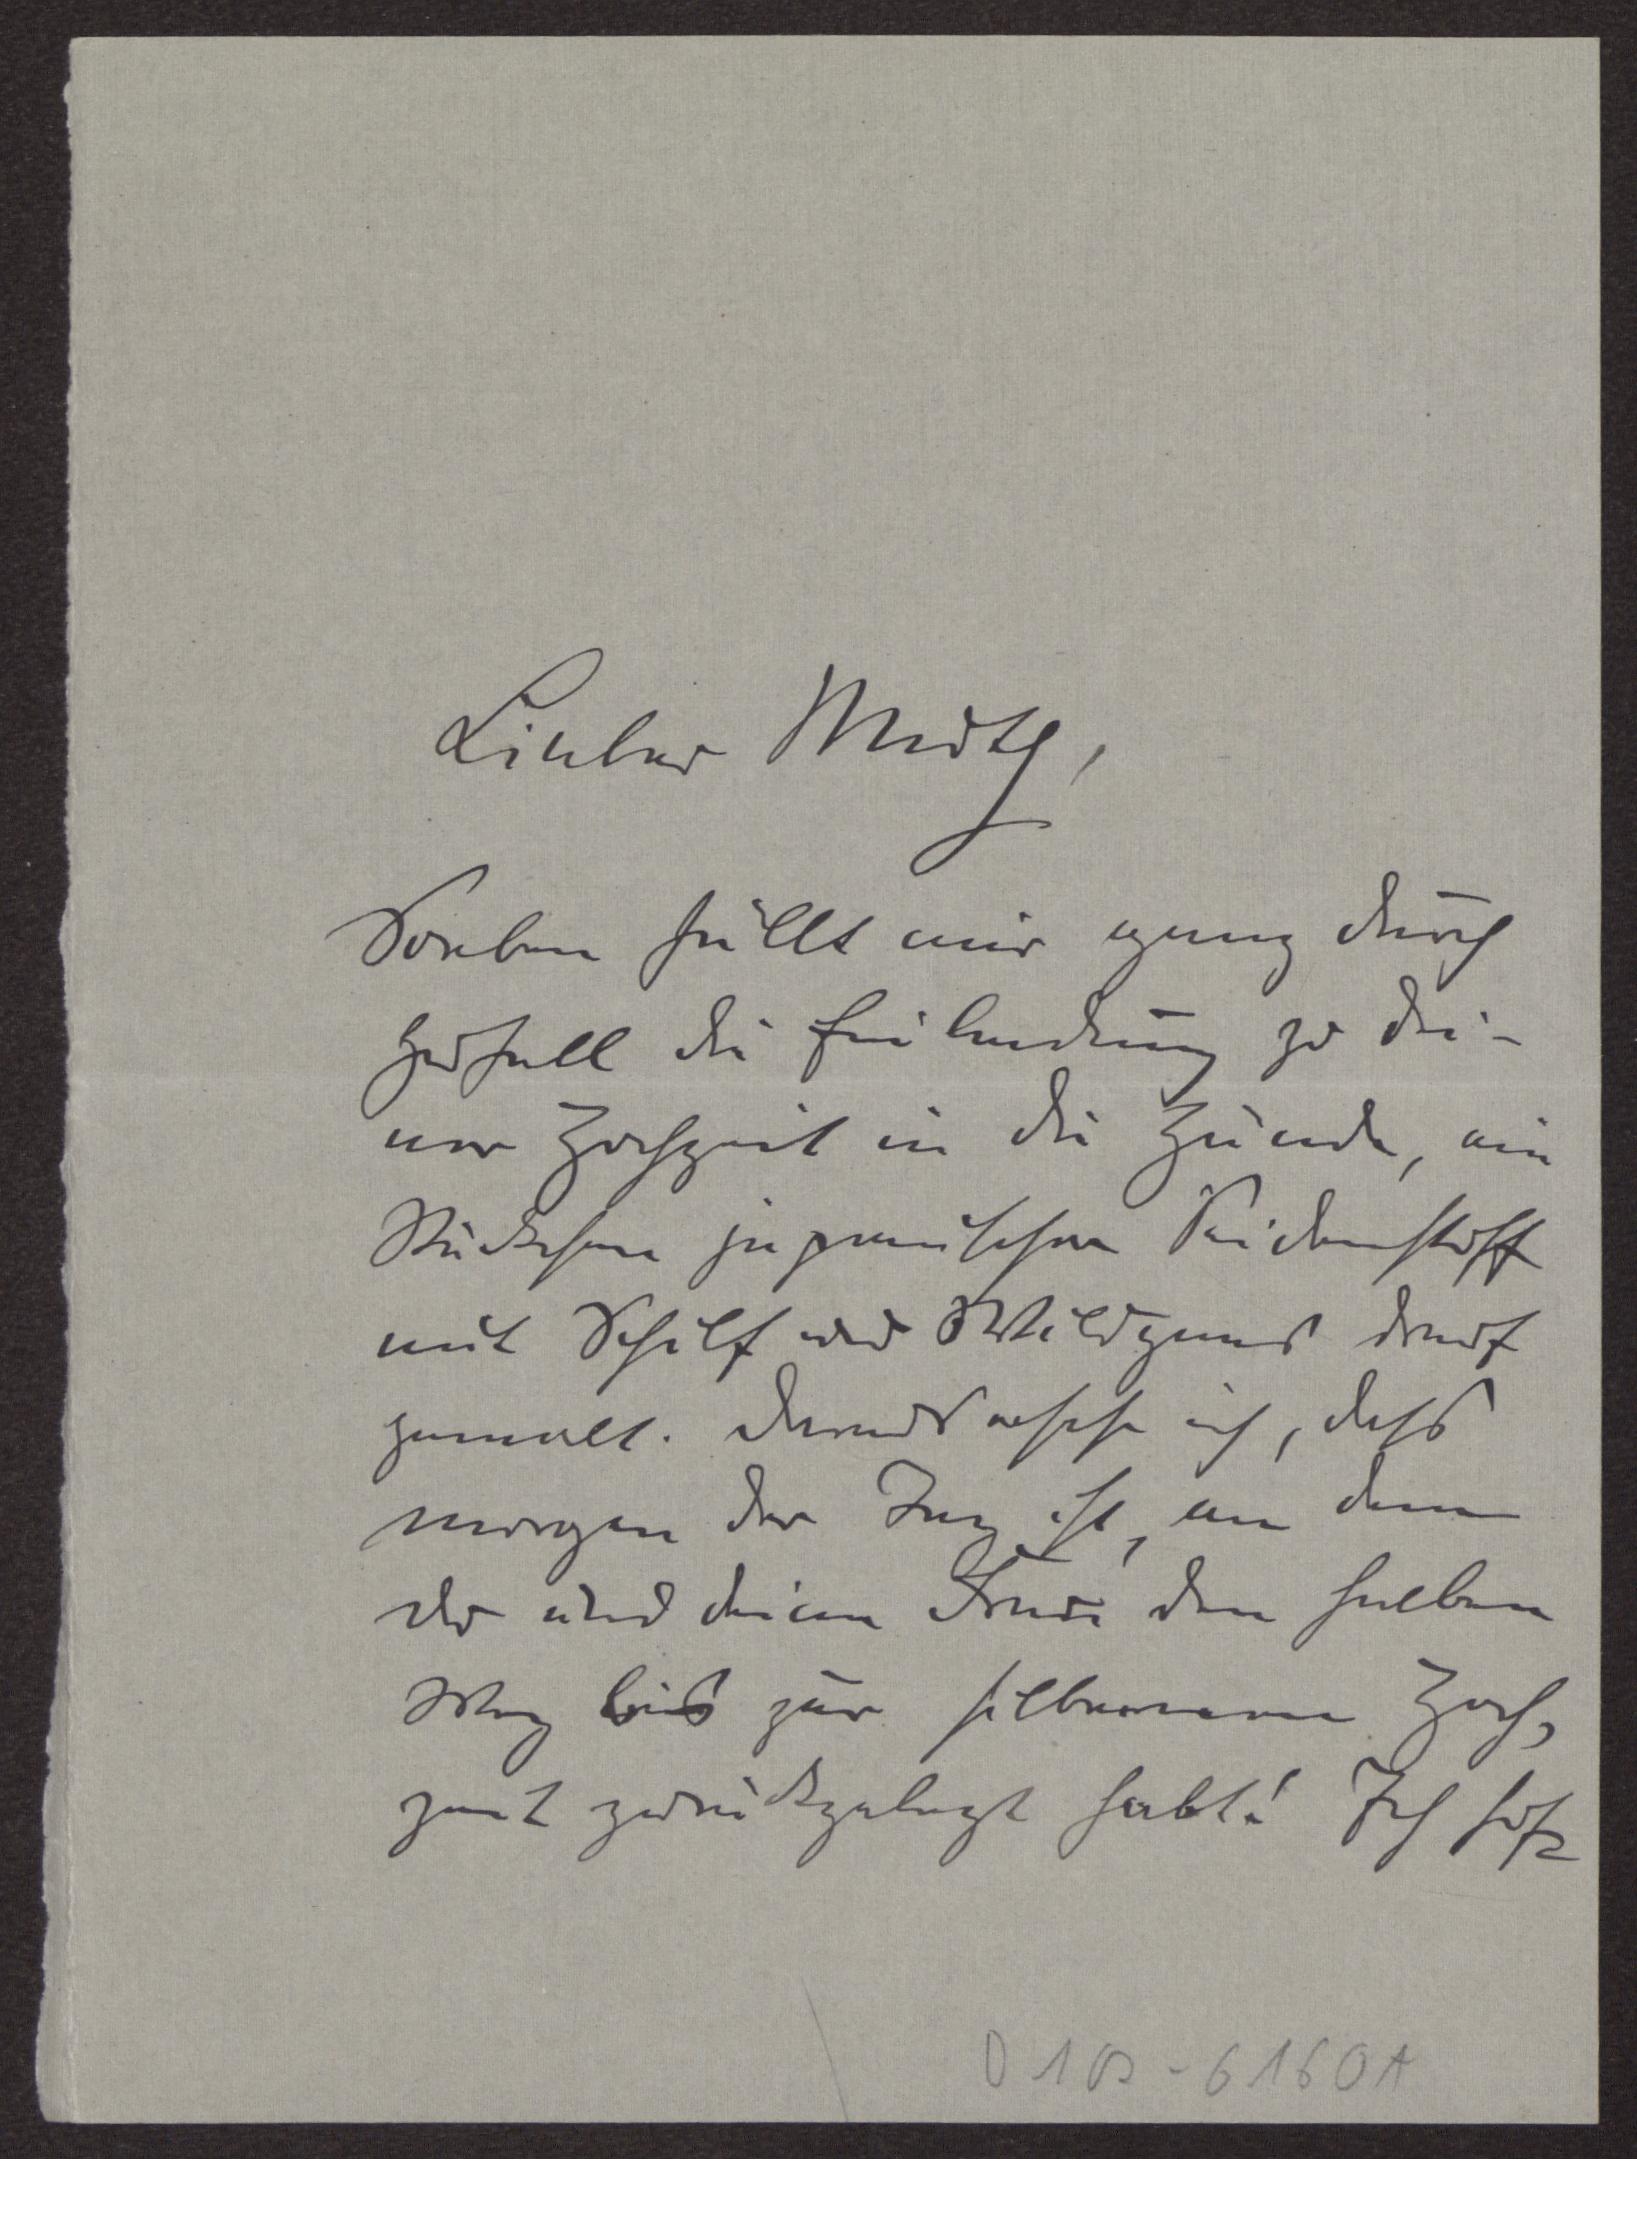 Lieber Muth,
Soeben fällt mir ganz durch
Zufall die Einladung zu dei-
ner Hochzeit in die Hände, ein
Stückchen japanischen Seidenstoff
mit Schilf und Wildgans drauf
gemalt. Daraus ersehe ich, dass
morgen der Tag ist, an dem
du und deine Frau den halben
Weg bis zur silbernen Hoch-
zeit zurückgelegt habt! Ich hoffe